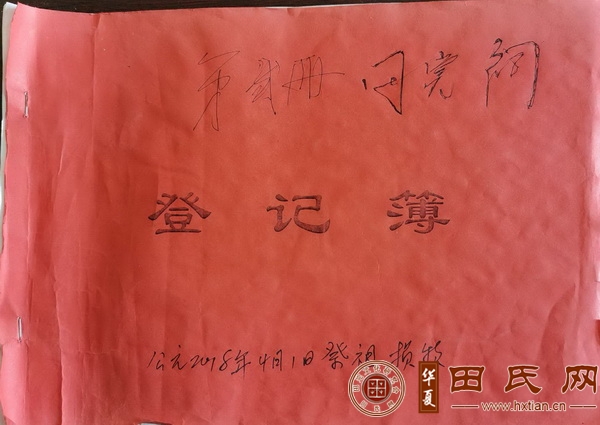 第贰册 田完祠
登记簿
公元2018年4月1日祭祖
华夏 田氏网
www.hxtian.cn